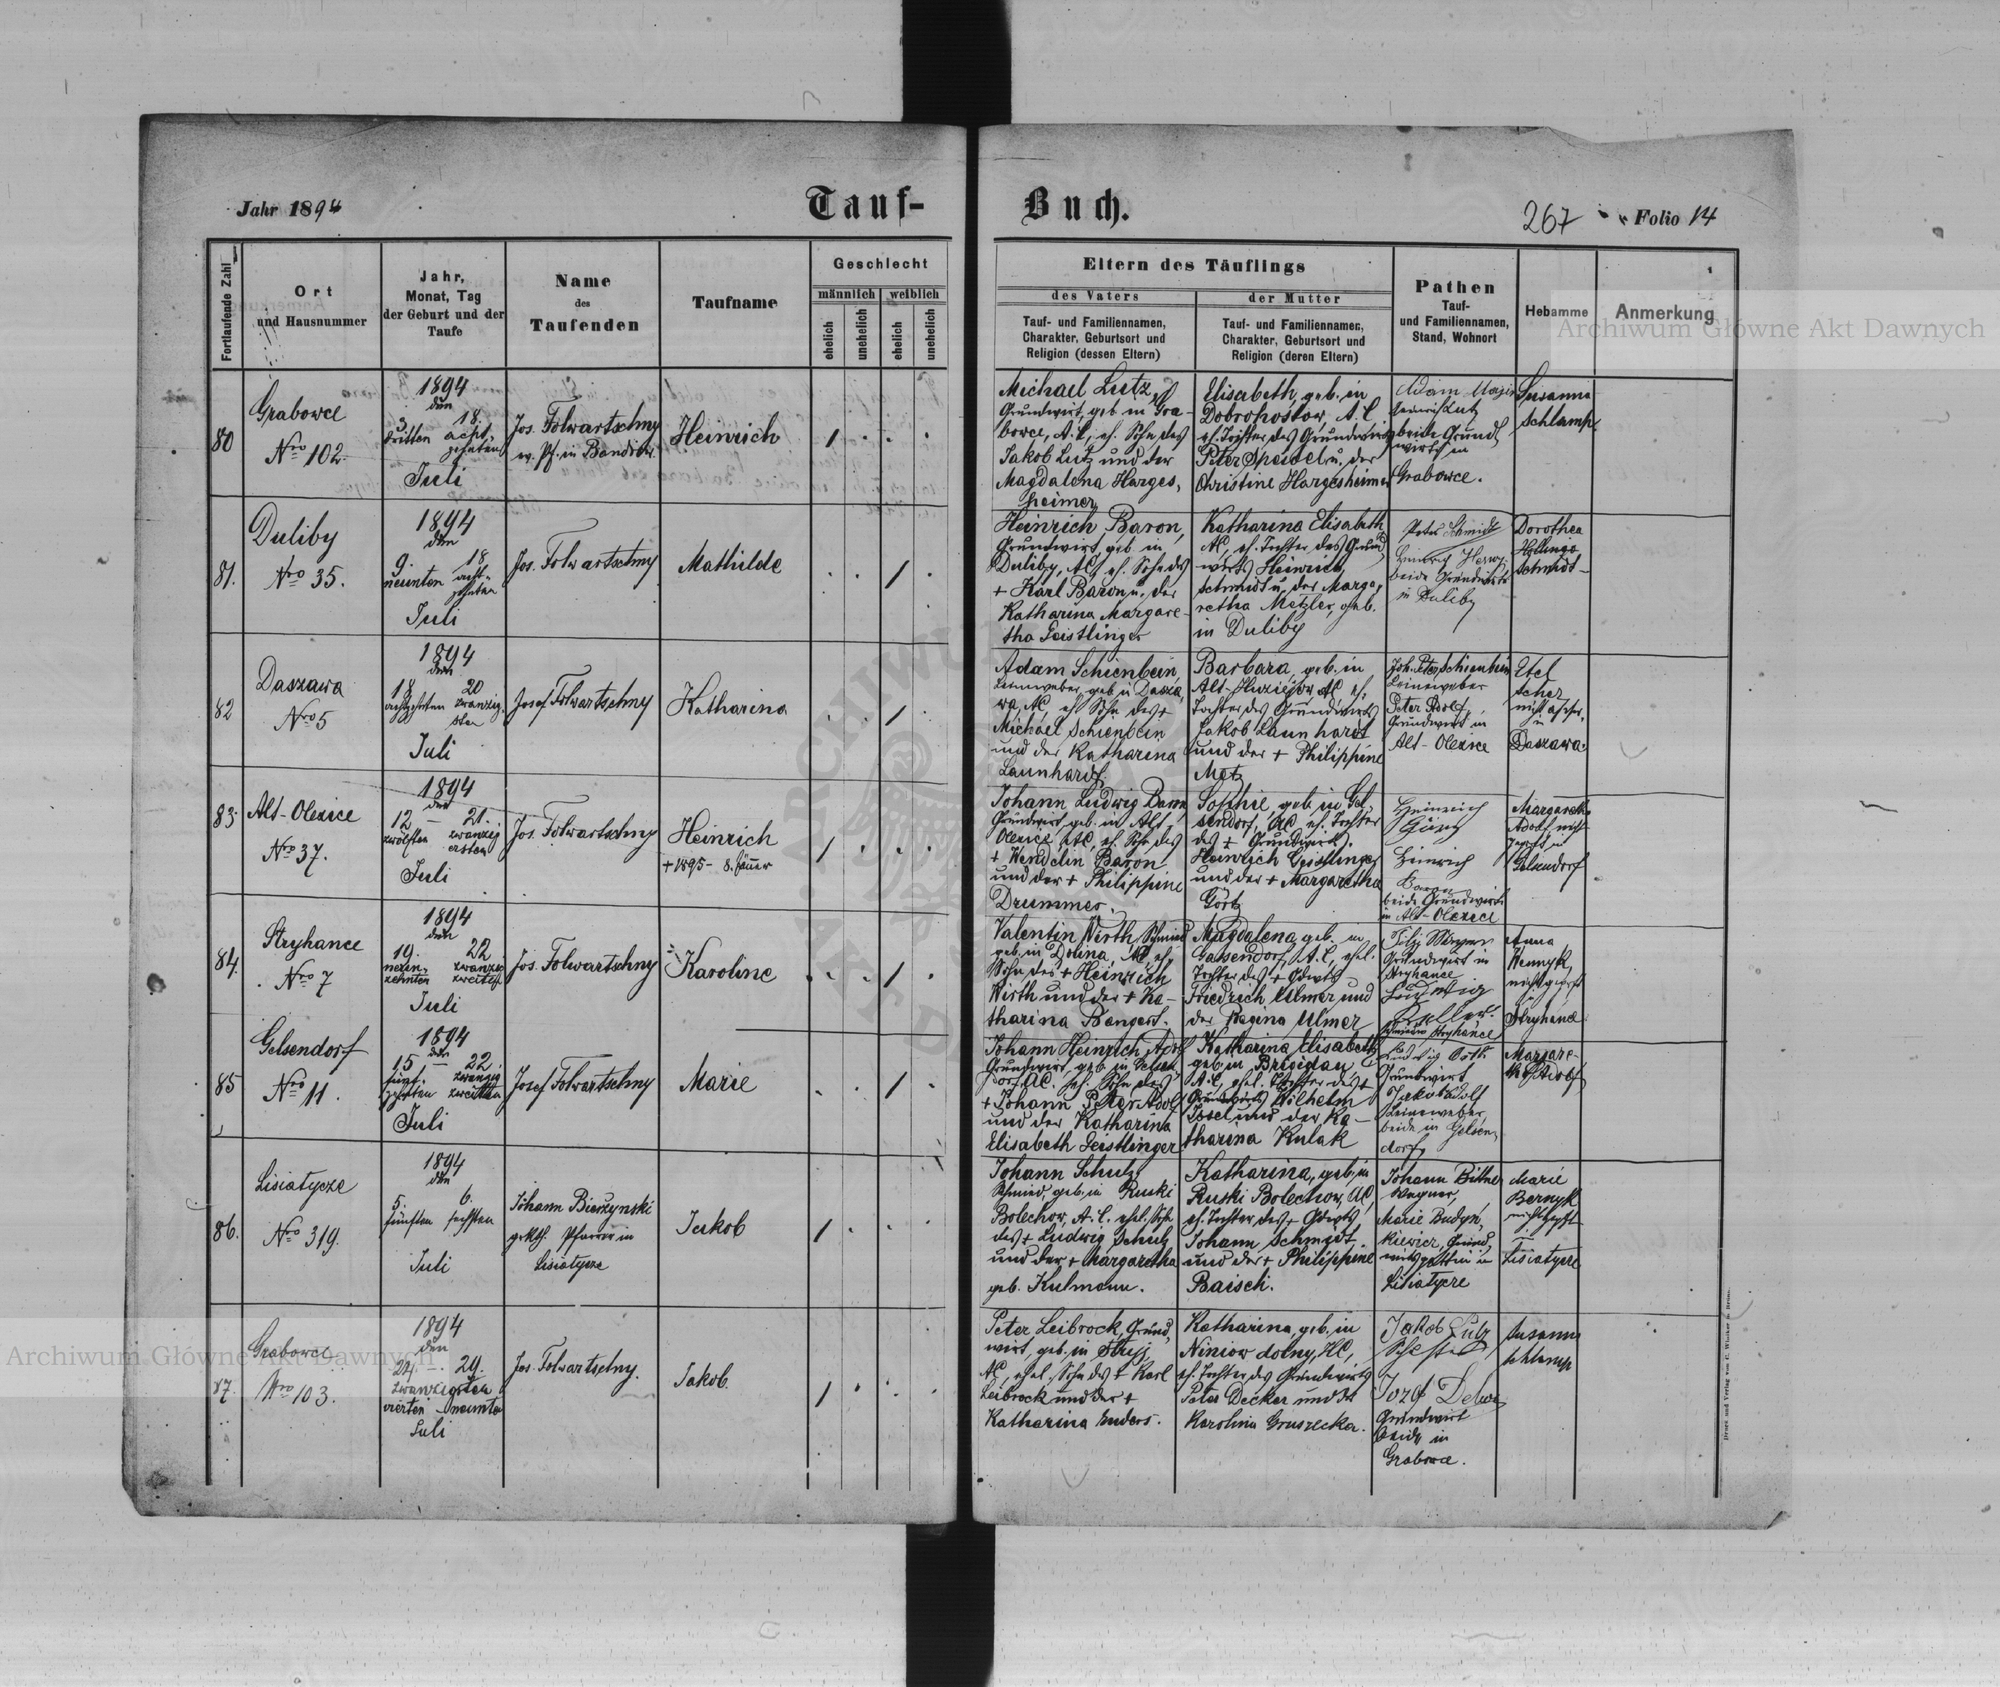 Jahr 1894
Tauf-
Buch.
267
Folio 14
Fortlaufende Zahl
Ort
und Hausnummer
Jahr,
Monat, Tag
der Geburt und der
Taufe
Name
des
Taufenden
Taufname
Geschlecht
männlich
weiblich
ehelich
unehelich
ehelich
unehelich
Eltern des Täuflings
des Vaters
der Mutter
Tauf- und Familiennamen,
Charakter, Geburtsort und
Religion (dessen Eltern)
Tauf- und Familiennamen,
Charakter, Geburtsort und
Religion (deren Eltern)
Pathen
Tauf-
und Familiennamen,
Stand, Wohnort
Hebamme
Anmerkung
Archiwum Główne Akt Dawnych
80
Grabowce
Nro 102.
1894
den
3. 18.
dritten acht-
zehnten
Juli
Jos. Folwartschny
ev. Pf. in Bandrów
Heinrich
Michael Lutz,
Grundwirt, geb. in Gra-
bowce, A.C., eh. Sohn des
Jakob Lutz und der
Magdalena Harges-
heimer
Elisabeth, geb. in
Dobrohostow, A.C.
eh. Tochter des Grundwirts
Peter Speidel u. der
Christine Hargesheimer
Adam
Lutz
beide Grund-
wirte in
Grabowce.
Susanna
Schlamp
81.
Duliby
Nro 35.
1894
den
9. 18.
neunten acht-
zehnten
Juli
Jos. Folwartschny
Mathilde
Heinrich Baron,
Grundwirt, geb. in
Duliby, AC, eh. Sohn des
+ Karl Baron u. der
Katharina Margare-
tha Geistlinger
Katharina Elisabeth
AC, eh. Tochter des Grund-
wirts Heinrich
Schmidt u. der Marga-
retha Metzler, geb.
in Duliby
Peter Schmidt
Heinrich
beide Grundwirte
in Duliby
Dorothea
Schmidt
82
Daszawa
Nro 5
1894
den
18. 20
achtzehnten zwanzig-
sten
Juli
Josef Folwartschny
Katharina
Adam Schienbein,
Leinweber, geb. in Dasza-
wa, AC, eh. Sohn des +
Michael Schienbein
und der Katharina
Launhardt.
Barbara, geb. in
Alt-Huziejow, AC, eh.
Tochter des Grundwirts
Jakob Launhardt
und der + Philippine
Metz
Joh. Peter Schienbein
Leineweber
Peter Adolf,
Grundwirt in
Alt-Olexice
Etel
Scher
in
Daszawa.
83.
Alt-Olexice
Nro 37.
1894
den
12 — 21.
zwölften zwanzig
ersten
Juli
Jos. Folwartschny
Heinrich
+ 1895 - 8. Jänner
Johann Ludwig Baron
Grundwirt, geb. in Alt-
Olexice, AC, eh. Sohn des
+ Wendelin Baron
und der + Philippine
Drummer.
Sophie, geb. in Gel-
sendorf, AC, eh. Tochter
des + Grundwirts
Heinrich Geistlinger
und der + Margaretha
Görtz
Heinrich
Heinrich
Baron
beide Grundwirte
in Alt-Olexice
Margaretha
Adolf, nicht
geprüft in
Gelsendorf
84.
Stryhance
Nro 7
1894
den
19. 22
neun- zwanzig
zehnten zweiten
Juli
Jos. Folwartschny
Karoline
Valentin Wirth, Schmied
geb. in Dolina, AC, eh.
Sohn des + Heinrich
Wirth und der + Ka-
tharina Bengert.
Magdalena, geb. in
Gassendorf, A.C, ehel.
Tochter des + Gdwts
Friedrich Ulmer und
der Regina Ulmer
Filip
Grundwirt in
Stryhance
Ludwig
Stryhance
Anna
Wennyk,
nicht geprüft
Stryhance
85
Gelsendorf
Nro 11.
1894
den
15 — 22.
fünf- zwanzig
zehnten zweiten
Juli
Josef Folwartschny
Marie
Johann Heinrich Adolf
Grundwirt, geb. in Gelsen-
dorf AC, eh. Sohn des
+ Johann Peter Adolf
und der Katharina
Elisabeth Geistlinger
Katharina Elisabeth
geb. in Brigidau
A.C, ehel. Tochter des +
Grundwirts Wilhelm
Josel und der Ka-
tharina Kulak
Ludwig
Grundwirt
Jakob Adolf
Leineweber,
beide in Gelsen-
dorf
Margare-
tha Adolf
86.
Lisiatycze
Nro 319.
1894
den
5. 6.
fünften sechsten
Juli
Johann Bierzynski
gr. kth. Pfarrer in
Lisiatycze
Jakob
Johann Schulz,
Schmied, geb. in Ruski
Bolechow, A.C. ehel. Sohn
des + Ludwig Schulz
und der + Margaretha
geb. Kulmann.
Katharina, geb. in
Ruski Bolechow, AC,
eh. Tochter des + Gdwts
Johann Schmidt
und der + Philippine
Baisch.
Johann Bittner
Wagner,
Marie Budyn-
kiewicz, Grund-
wirtsgattin in
Lisiatycze
Marie
Bernyk
nicht gepft.
Lisiatycze
87.
Grabowce
Nro 103.
1894
den
24. — 29.
zwanzigsten
vierten neunten
Juli
Jos. Folwartschny.
Jakob.
Peter Leibrock, Grund-
wirt, geb. in Stryj
AC, ehel. Sohn des + Karl
Leibrock und der +
Katharina Enders.
Katharina, geb. in
Niniow dolny, HC,
eh. Tochter des Grundwirts
Peter Decker und der
Karolina Gruszecka.
Jakob Lutz
Jozef
Grundwirt
beide in
Grabowce.
Susanna
Schlamp
Archiwum Główne Akt Dawnych